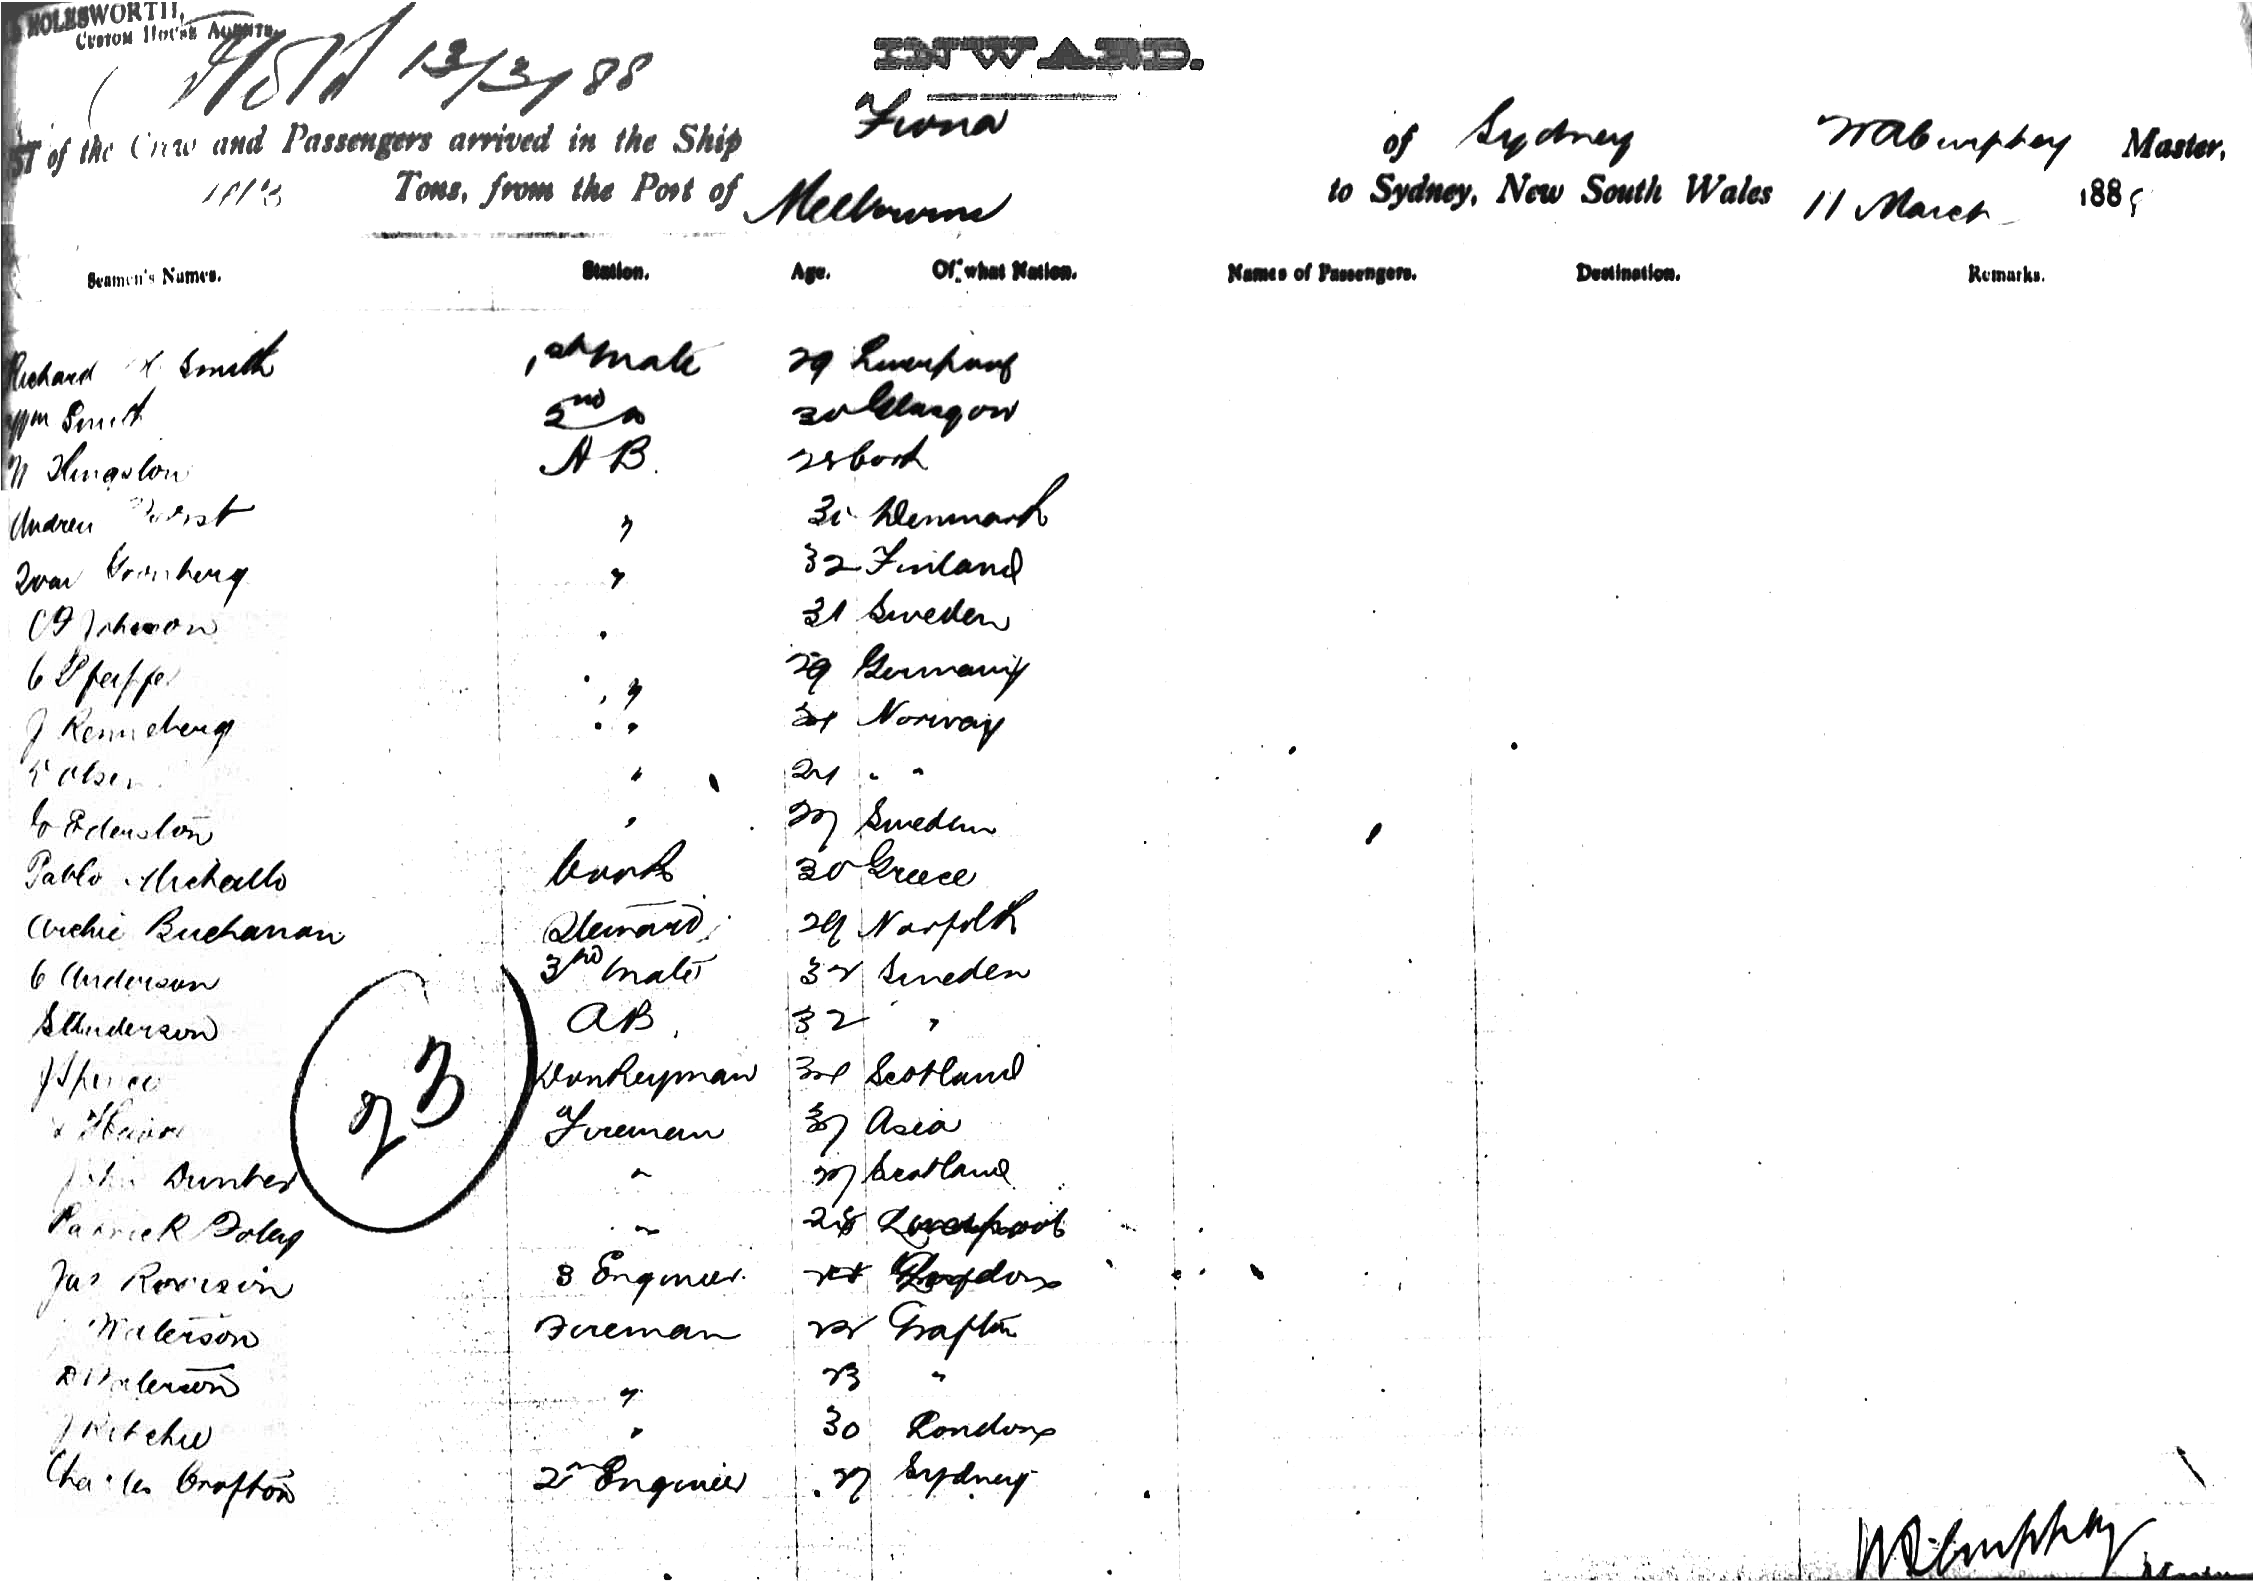 HOLESWORTH,
CUSTOM HOUSE AGENTS.
13/3/88
INWARD.
ST of the Crew and Passengers arrived in the Ship Fiona of Sydney Master,
Tons, from the Port of Melbourne to Sydney, New South Wales 11 March 188
Seamen's Names. Station. Age. Of what Nation. Names of Passengers. Destination. Remarks.
Richard H Smith 1st Mate 29 Liverpool
Wm Smith 2nd Do 30 Glasgow
Kingston A B. 28 Cork
Andrew " 31 Denmark
Ivar Gronberg " 32 Finland
Johnson " 31 Sweden
C Pfeiffer " 29 Germany
J Renneberg " 34 Norway
Olsen " 24 " "
" 27 Sweden
Pablo Michallo Cook 30 Greece
Archie Buchanan Steward 29 Norfolk
C Anderson 3rd Mate 32 Sweden
S Anderson A B. 32 "
J Spence Donkeyman 34 Scotland
Fireman 37 Asia
John Dunbar " 27 Scotland
Patrick Foley " 28 Liverpool
Jas Robison 3 Engineer London
Waterson Fireman 22 Grafton
D Waterson " 23 "
J Ritchie " 30 London
Charles Grafton 2nd Engineer 27 Sydney
23